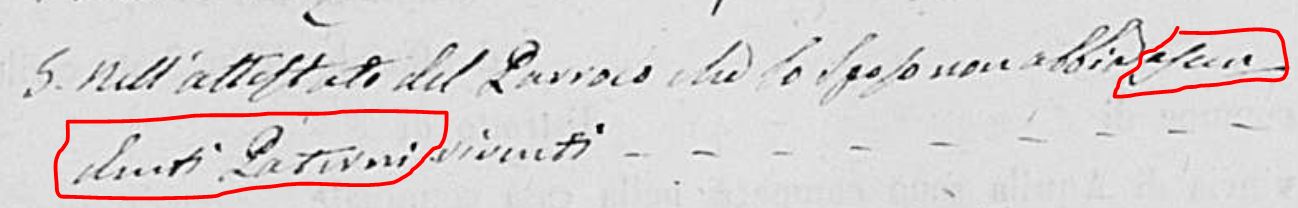 5. Nell'attestato del Parroco che lo sposo non abbia ascen
denti Paterni viventi